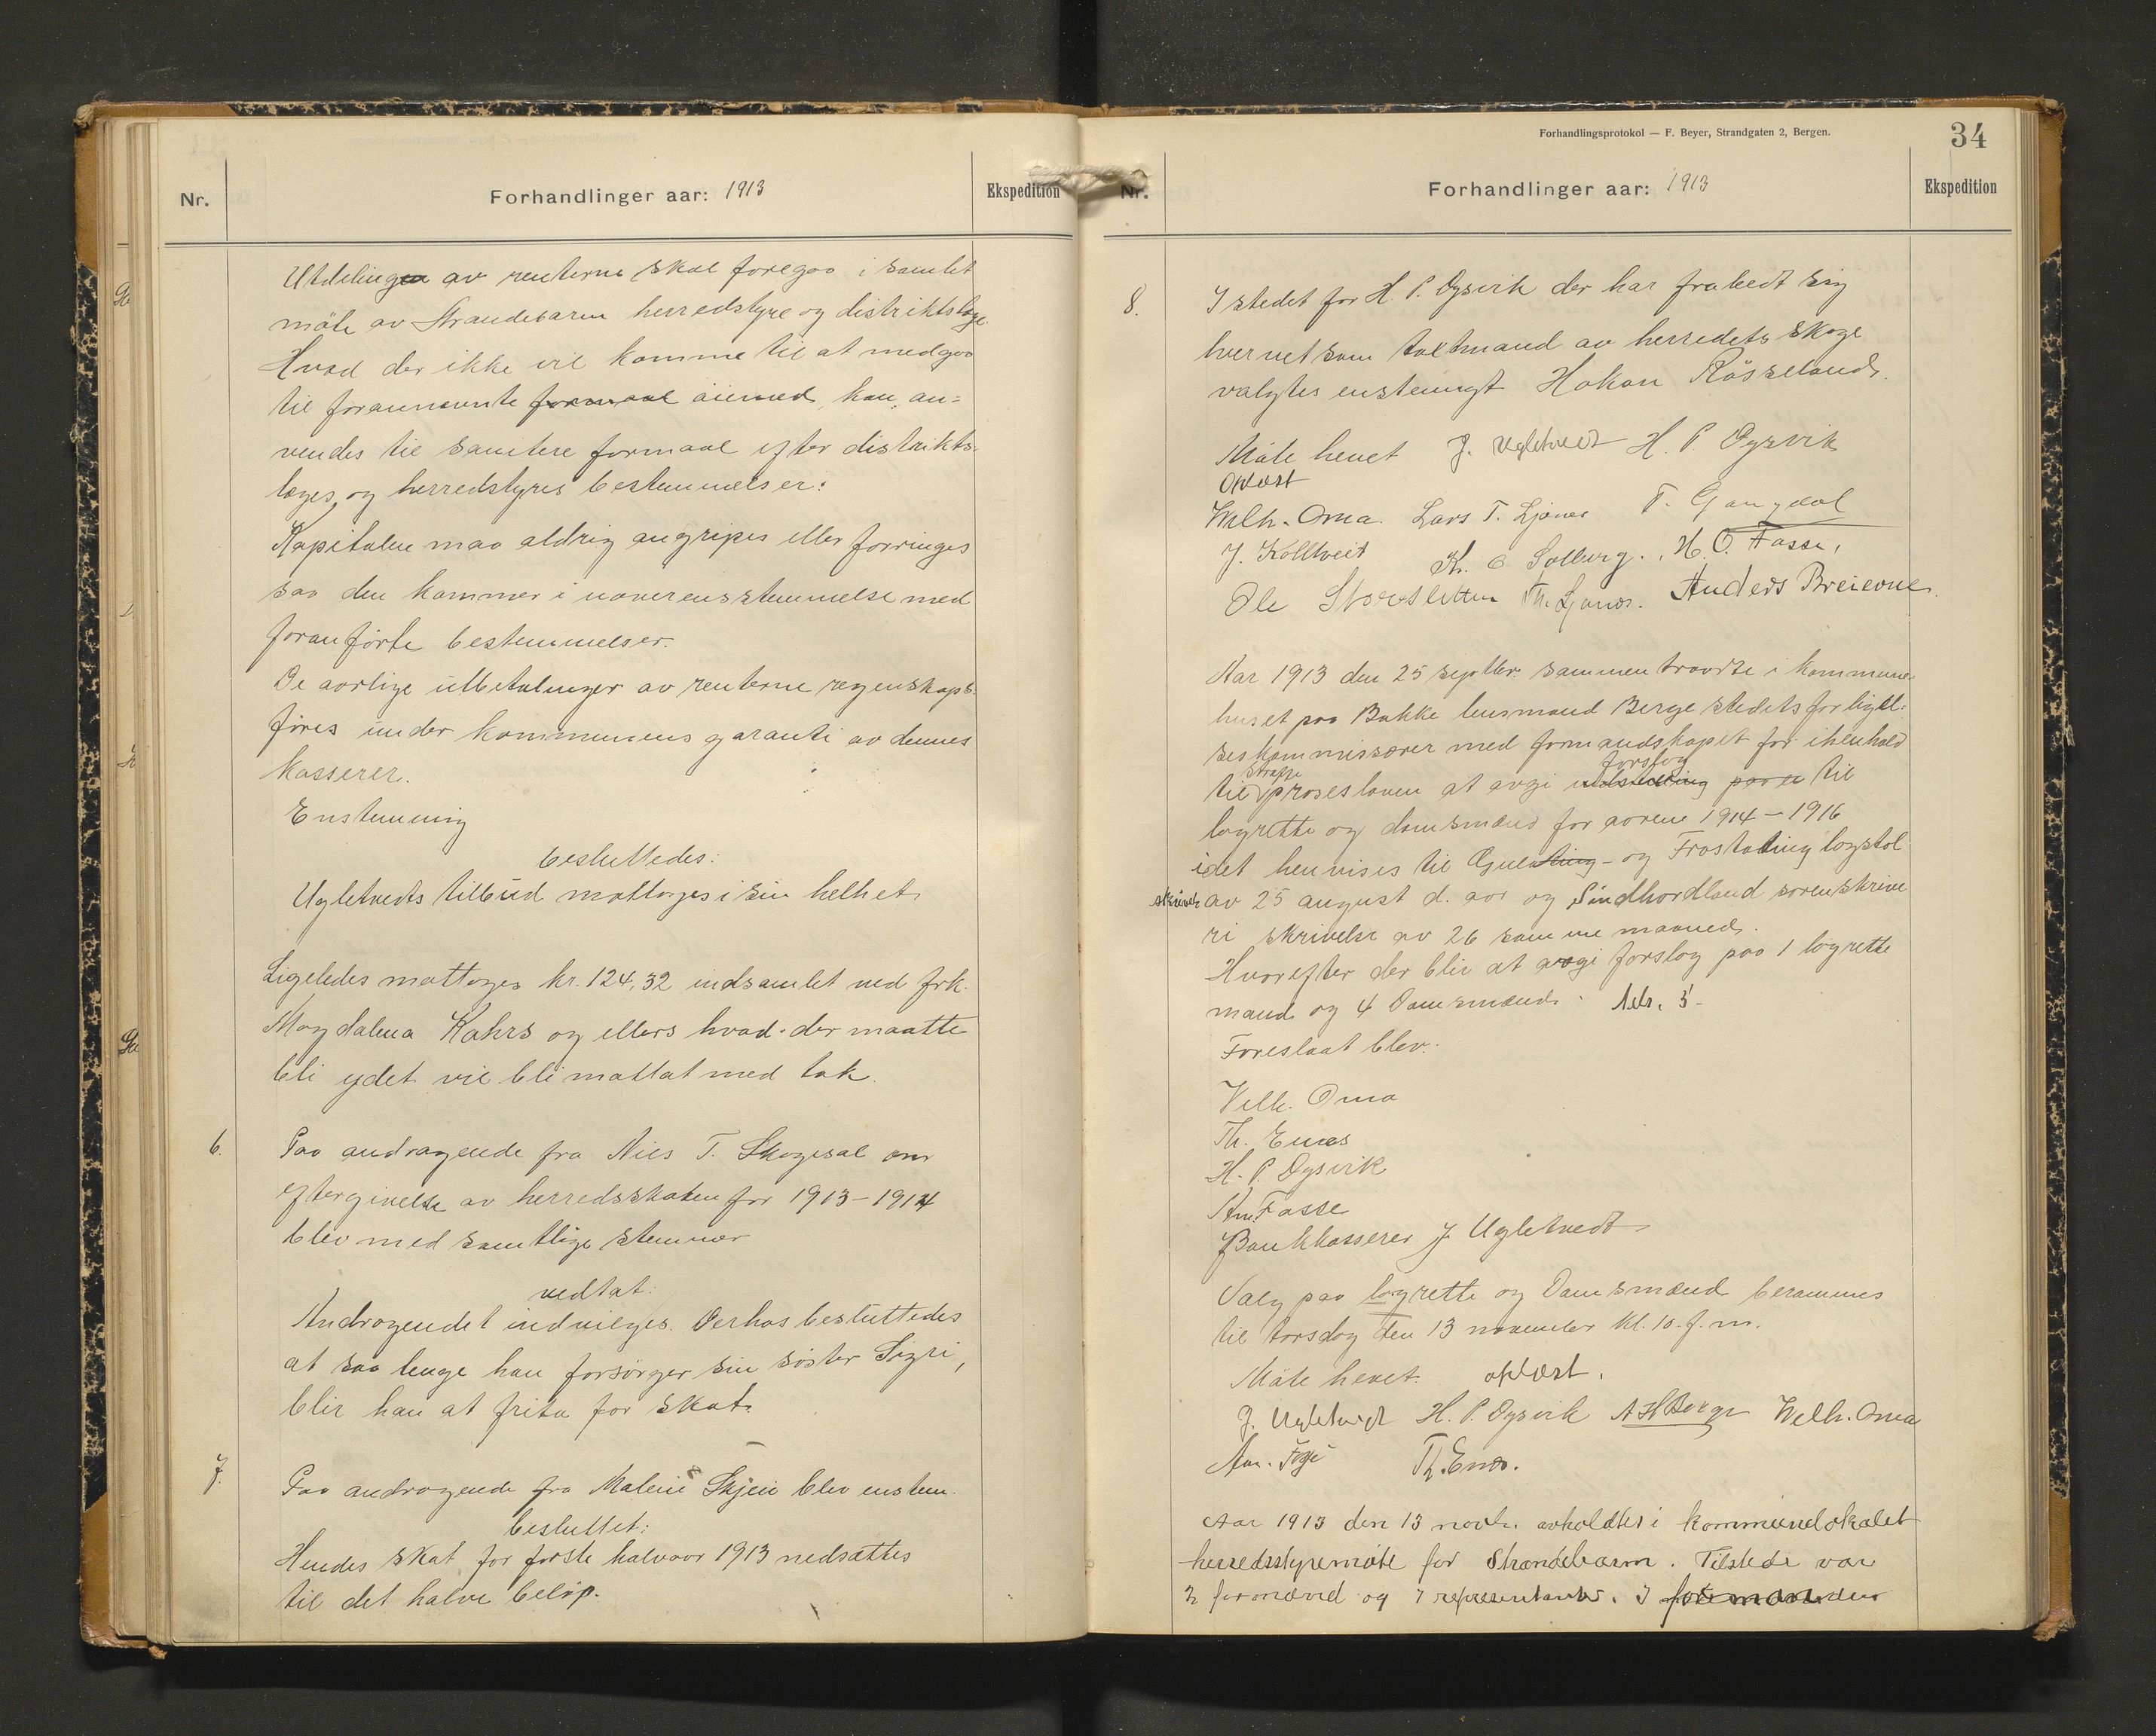 Nr.
Forhandlinger aar: 1913
Ekspedition
Utdelingen av renterne skal foregaa i samlet
møte av Strandebarm herredstyre og distriktslæge.
Hvad der ikke vil komme til at medgaa
til forannævnte formaal øiemed, kan an=
vendes til sanitere formaal efter distrikts-
læges og herredstyres bestemmelser.
Kapitalen maa aldrig angripes eller forringes
saa den kommer i uoverensstemmelse med
foranførte bestemmelser.
De aarlige utbetalinger av renterne regenskaps-
føres under kommunens garanti av dennes
kasserer.
Enstemmig
besluttedes:
Ugletvedts tilbud mottages i sin helhet.
Ligeledes mottages kr. 124,32 indsamlet ved frk.
Magdalena Kahrs og ellers hvad der maatte
bli ydet vil bli mottat med tak.
6.
Paa andragende fra Nils T. Skogesal om
eftergivelse av herredsskaten for 1913-1914
blev med samtlige stemmer
vedtat:
Andragendet indvilges. Derhos besluttedes
at saa lenge han forsørger sin søster Sigri,
blir han at frita for skat.
7.
Paa andragende fra Malene Skjeie blev enstem.
besluttet:
Hendes skat for første halvaar 1913 nedsættes
til det halve beløp.
Forhandlingsprotokol — F. Beyer, Strandgaten 2, Bergen.
34
Nr.
Forhandlinger aar: 1913
Ekspedition
8.
I stedet for H. P. Øysvik der har frabedt sig
hvervet som taltmand av herredets skoge
valgtes enstemigt Hakon Røsseland.
Møte hevet J. Ugletveit H. P. Øysvik
Oplæst
Wilh. Oma. Lars T. Ljones T. Gangdal
J. Kolltveit K. O Solberg. H. O. Fosse,
Ole Storesletten Th. Ljones. Anders Breievne.
Aar 1913 den 25 septbr. sammentraadte i kommune-
huset paa Bakke lensmand Berge stedets forligel-
seskommissærer med formandskapet for i henhold
til straffe prosesloven at avgi indstilling paa forslag til
lagrette og domsmænd for aarene 1914-1916
idet henvises til Gulating- og Frostating lagstol
skrivelse av 25 august d. aar og Sundhordland sorenskrive
ri skrivelse av 26 samme maaned.
Hvorefter der blir at avgi forslag paa 1 lagrette
mand og 4 Domsmænd. Tils. 5-
Foreslaat blev:
Vilh. Oma
Th. Enæs
H. P. Øysvik
Am. Fosse
Bankkasserer J. Ugletvedt
Valg paa lagrette og Domsmænd berammes
til torsdag den 13 november Kl. 10 f. m.
Møte hevet. oplæst.
J. Ugletveit H. P. Øysvik A H Berge Wilh. Oma
Th. Enæs.
Aar 1913 den 13 novbr. avholdtes i kommunelokalet
herredsstyremøte for Strandebarm. Tilstede var
2 formænd og 7 representanter. I formandens